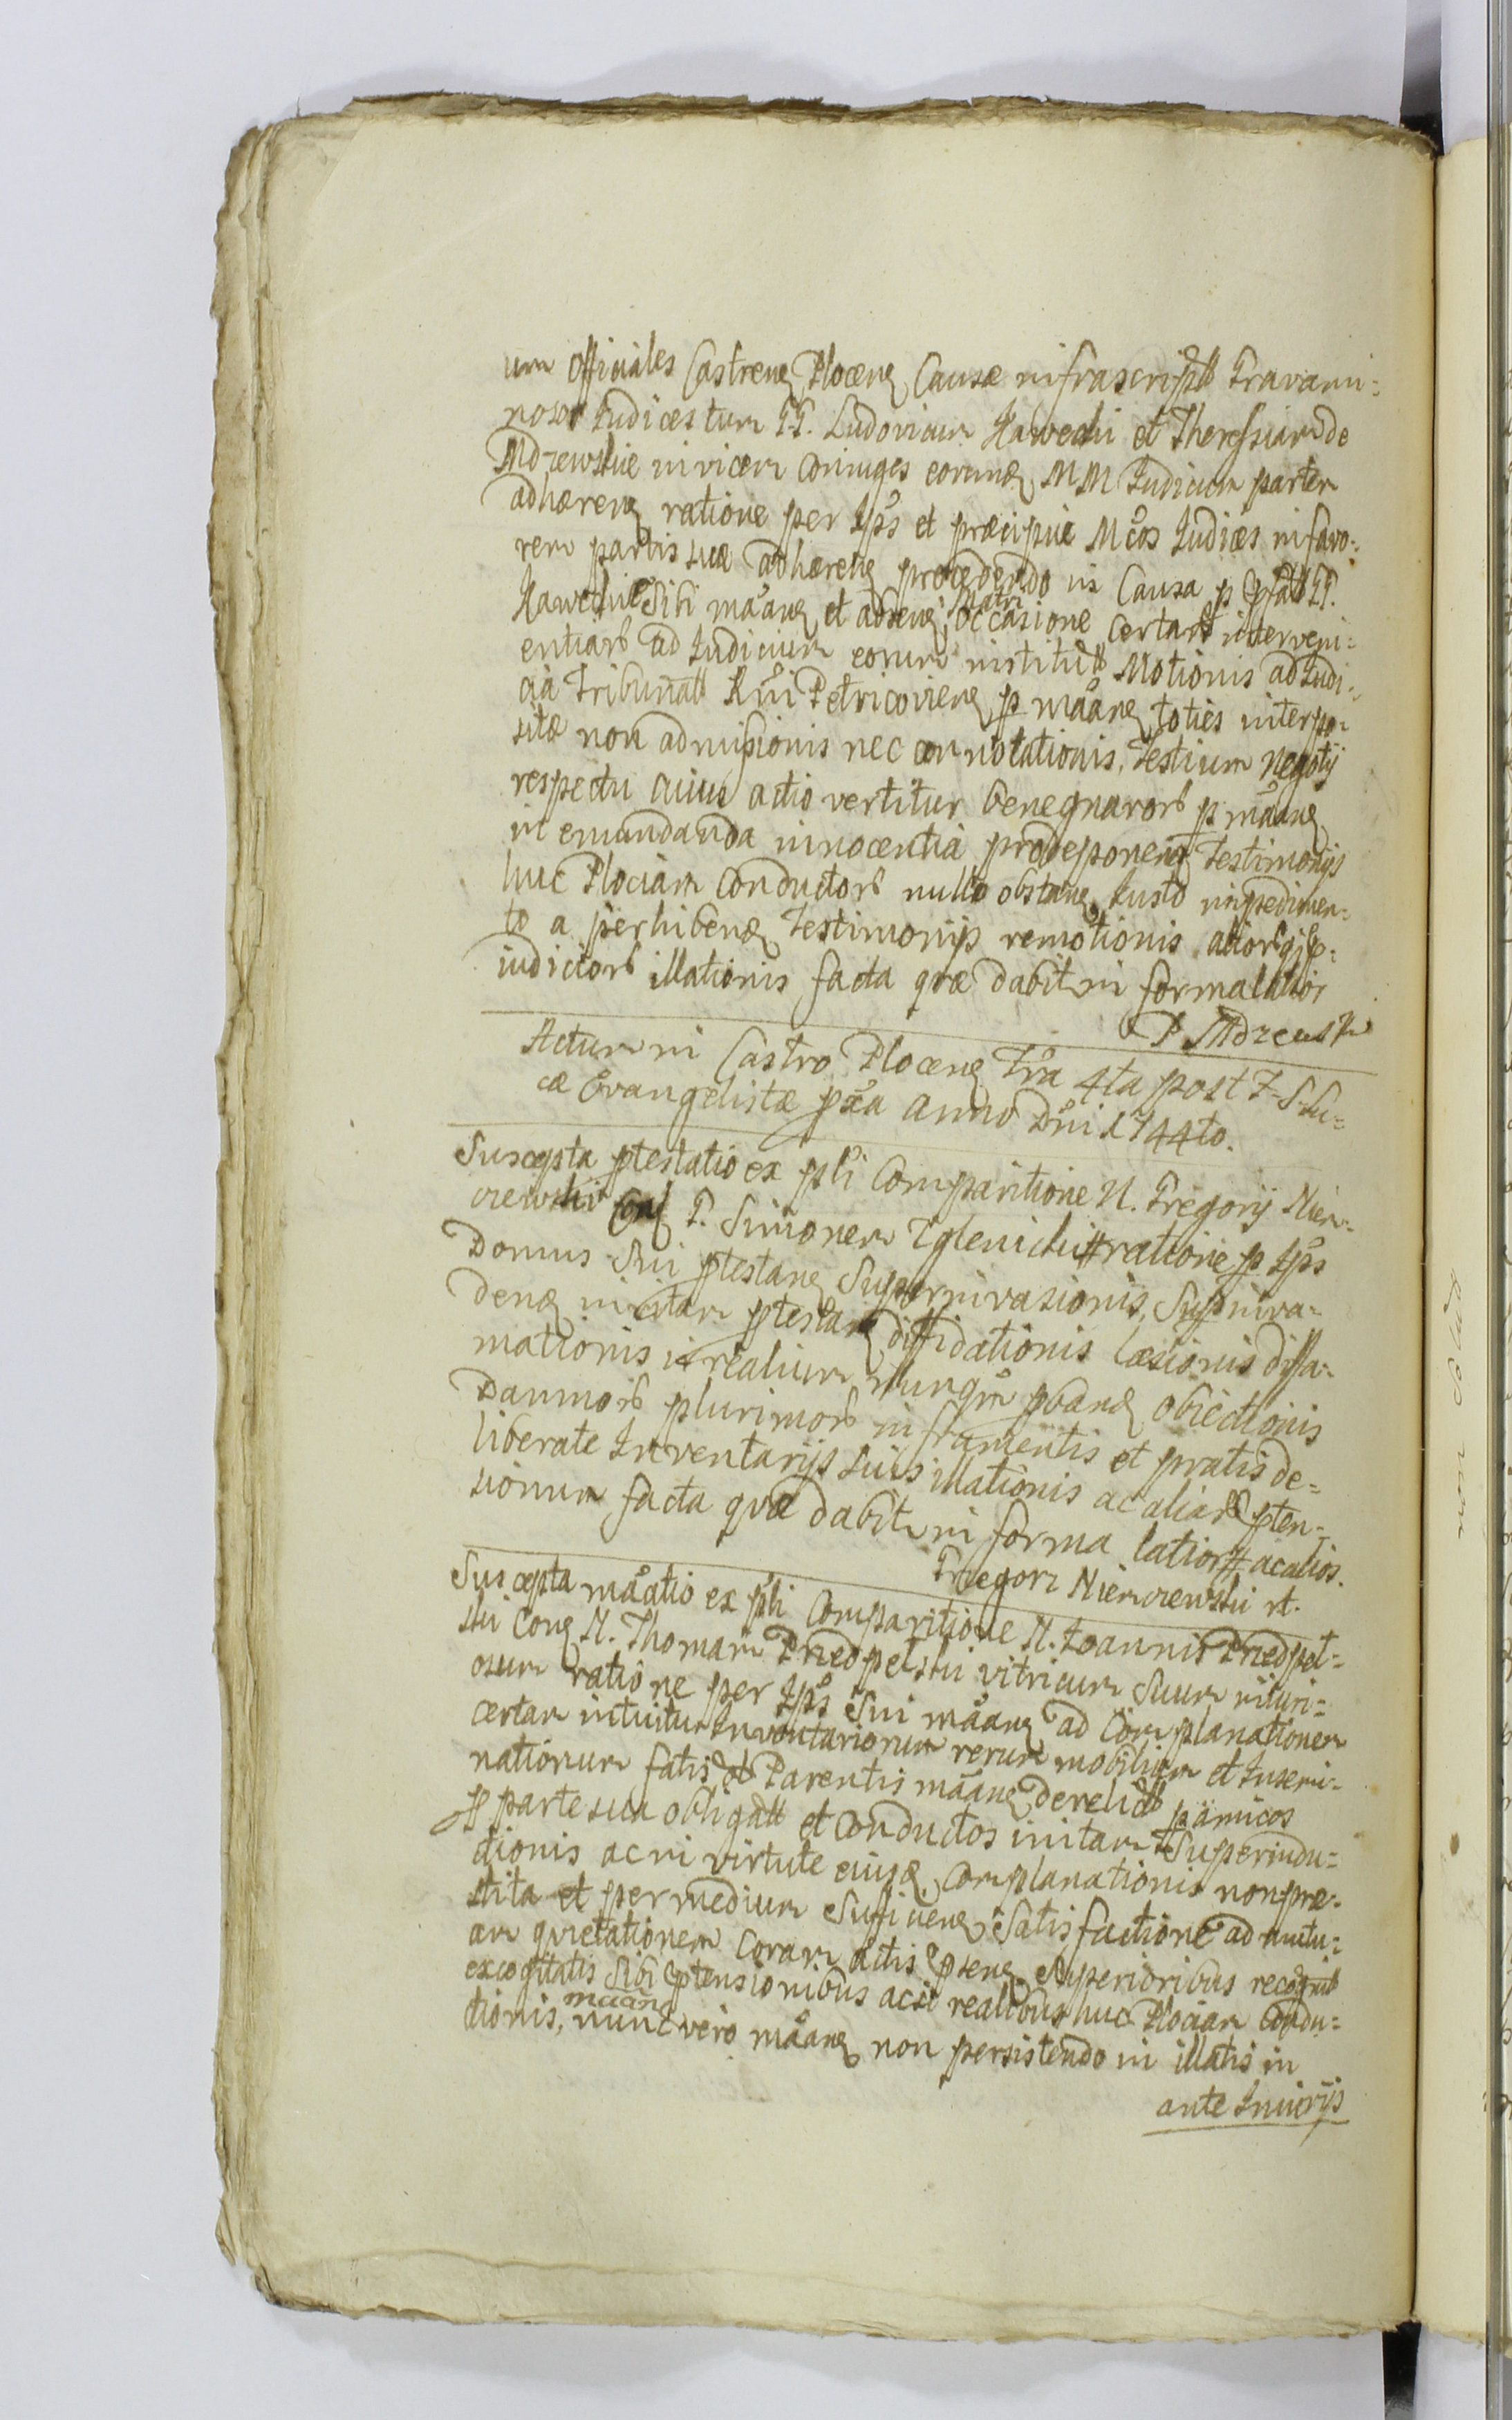 um Officiales Castren Plocen Causæ infrascript Gravami=
nosos Judices tum GG. Ludovicum Kawecki et Theressiam de
Mdzewskie invicem Coniuges eorumq MM Judicum partem
adhæren ratione per Ipos et præcipue Mcos Judices in favo=
rem partis suæ adhæren procedendo in Causa p Pfat GG.
Kaweckie Sibi maan et adhen Matri occasione certar interveni=
entiar ad Judicium eorum institut Motionis ad Judi=
cia Tribunal Rni Petricovien p maan toties interpo=
sitæ non admissionis nec connotationis, Testium Negotij
respectu cuius actio vertitur benegnaror p maan
in emundanda innocentia pro deponen Testimonijs
huc Plociam Conductor nullo obstan Justo impedimen=
to a perhiben Testimonijs remotionis alior
iudicior illationis facta quæ dabit in forma latior
P Mdzewski
Actum in Castro Plocen Fra 4ta post F. S. Lu=
cæ Evangelistæ pxa Anno Dni 1744to.
Suscepta ptestatio ex pli Comparitione N. Gregorij Niem=
czewski Con G. Simonem Zglenicki # ratione p Ipos
Domus Sui ptestan Superinvasionis, Sup inva=
den in vitam ptestan diffidationis læsionis diffa=
mationis irrealium nunqm pban obiectionis
Damnor plurimor in frumentis et pratis de=
liberate Inventarijs suis illationis ac aliar pten=
sionum facta quæ dabit in forma latior # ac alios.
Gregorz Niemczewski rt.
Suscepta maatio ex pli Comparitione N. Joannis Przedpel=
ski Con N. Thomam Przedpelski vitricum Suum iniuri=
osum ratione per Ipos Sui maan ad Complanationem
certam intuitu Inventariorum rerum mobilium et Insemi=
nationum fatis Parentis maan derelict p amicos
p parte sua obligat et Conductos initam Superindu=
ctionis ac in virtute eiusd Complanationis non præ=
stita et per medium Sufficien Satisfactione ad mutu=
am quietationem Coram actis psen Superioribus recognit
excogitatis Sibi ptensionibus acsi realibus huc Plociam Condu=
ctionis, maan nunc vero maan non persistendo in illatis in
ante Iniurijs